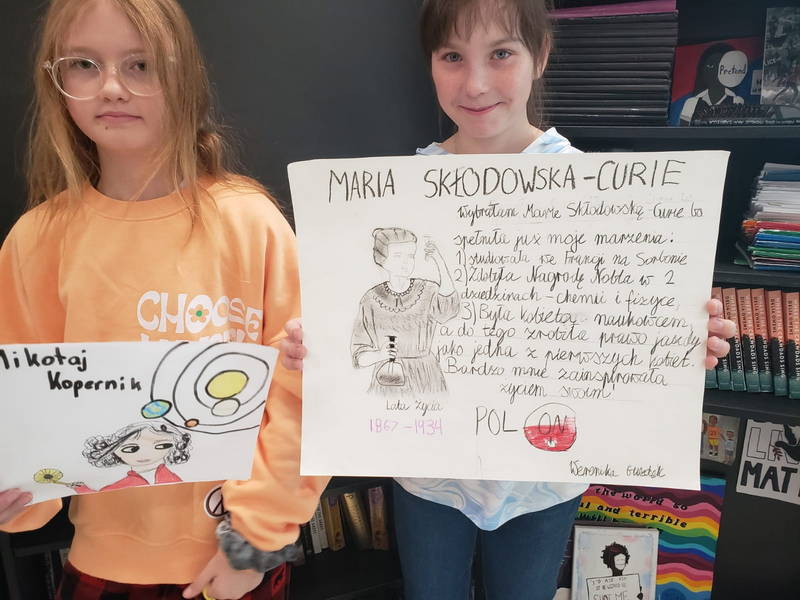 Pretend
MARIA SKŁODOWSKA-CURIE
Wybrałam Marię Skłodowską-Curie bo
spełniła już moje marzenia:
1) studiowała we Francji na Sorbonie
2) Zdobyła Nagrodę Nobla w 2
dziedzinach - chemii i fizyce,
3) Była kobietą naukowcem,
a do tego zrobiła prawo jazdy
jako jedna z pierwszych kobiet.
Bardzo mnie zainspirowała
życiem swoim!
Lata życia
1867-1934
POLON
Weronika
CHOOSE
Mikołaj
Kopernik
MAT
the world so
and terrible